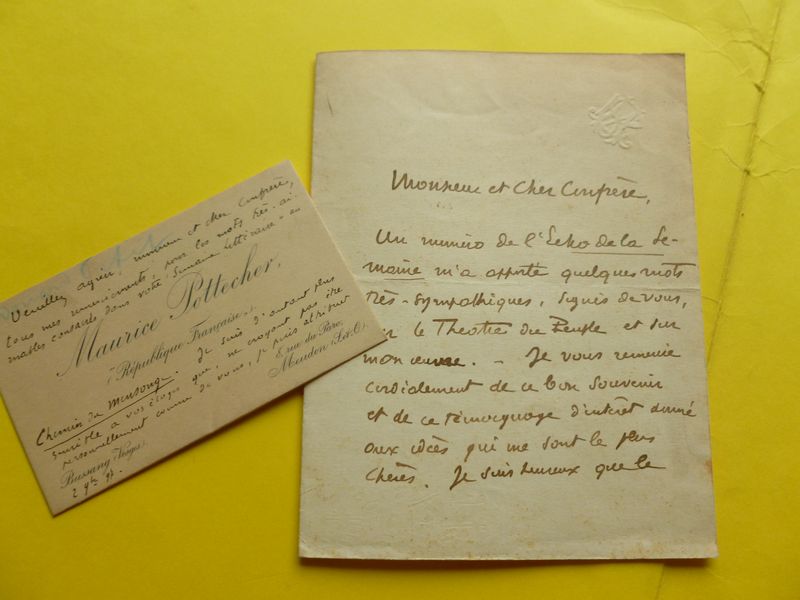 Veuillez agréer, monsieur et cher Confrère,
tous mes remerciements, pour les mots très ai-
mables consacrés dans votre "Semaine littéraire" au
Maurice Pottecher,
"République Française".
8, rue du Parc,
Meudon (S.et-O.)
Chemin du Mensonge. Je suis d'autant plus
sensible à vos éloges que, ne croyant pas être
personnellement connu de vous, je puis attribuer
Bussang (Vosges)
2 9bre 97.
Monsieur et Cher Confrère,
Un numéro de l'Echo de la Se-
maine m'a apporté quelques mots
très-sympathiques, signés de vous,
le Théâtre du Peuple et sur
mon œuvre. - Je vous remercie
cordialement de ce bon souvenir
et de ce témoignage d'intérêt donné
aux idées qui me sont le plus
chères. Je suis heureux que le